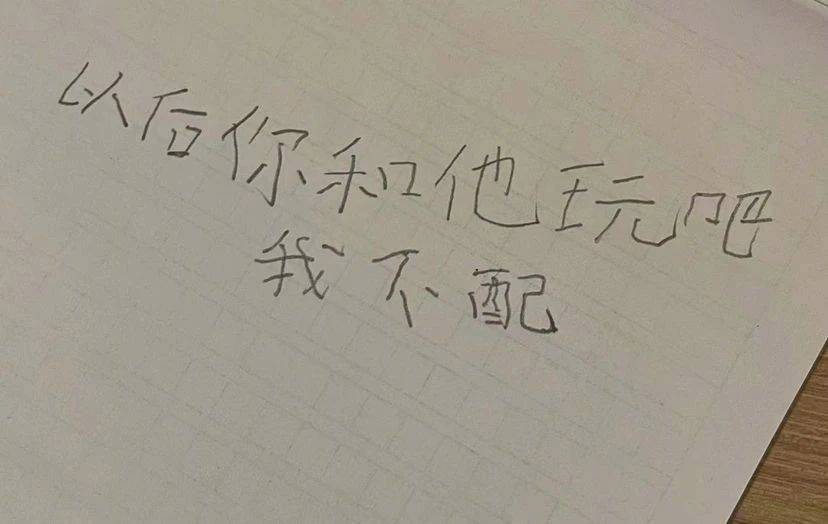 以后你和他玩吧
我不配